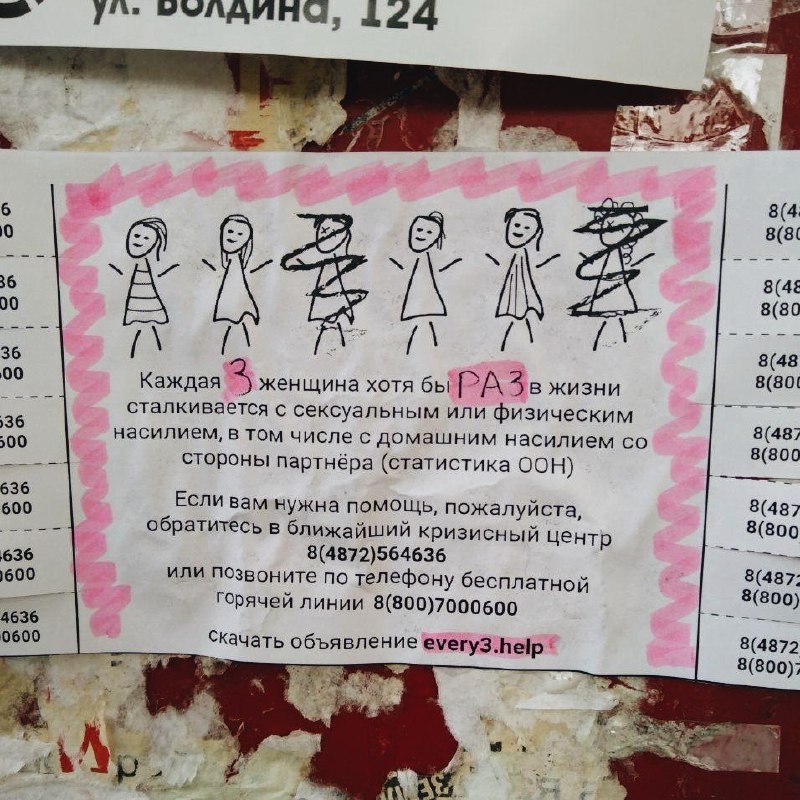 ул. Болдина, 124
Каждая 3 женщина хотя бы РАЗ в жизни
сталкивается с сексуальным или физическим
насилием, в том числе с домашним насилием со
стороны партнёра (статистика ООН)
Если вам нужна помощь, пожалуйста,
обратитесь в ближайший кризисный центр
8(4872)564636
или позвоните по телефону бесплатной
горячей линии 8(800)7000600
скачать объявление every3.help
6
00
36
00
36
600
636
600
636
600
4636
0600
4636
00600
8(48
8(80
8(48
8(800
8(48
8(800
8(487
8(800
8(487
8(800
8(4872
8(800)
8(4872)
8(800)7